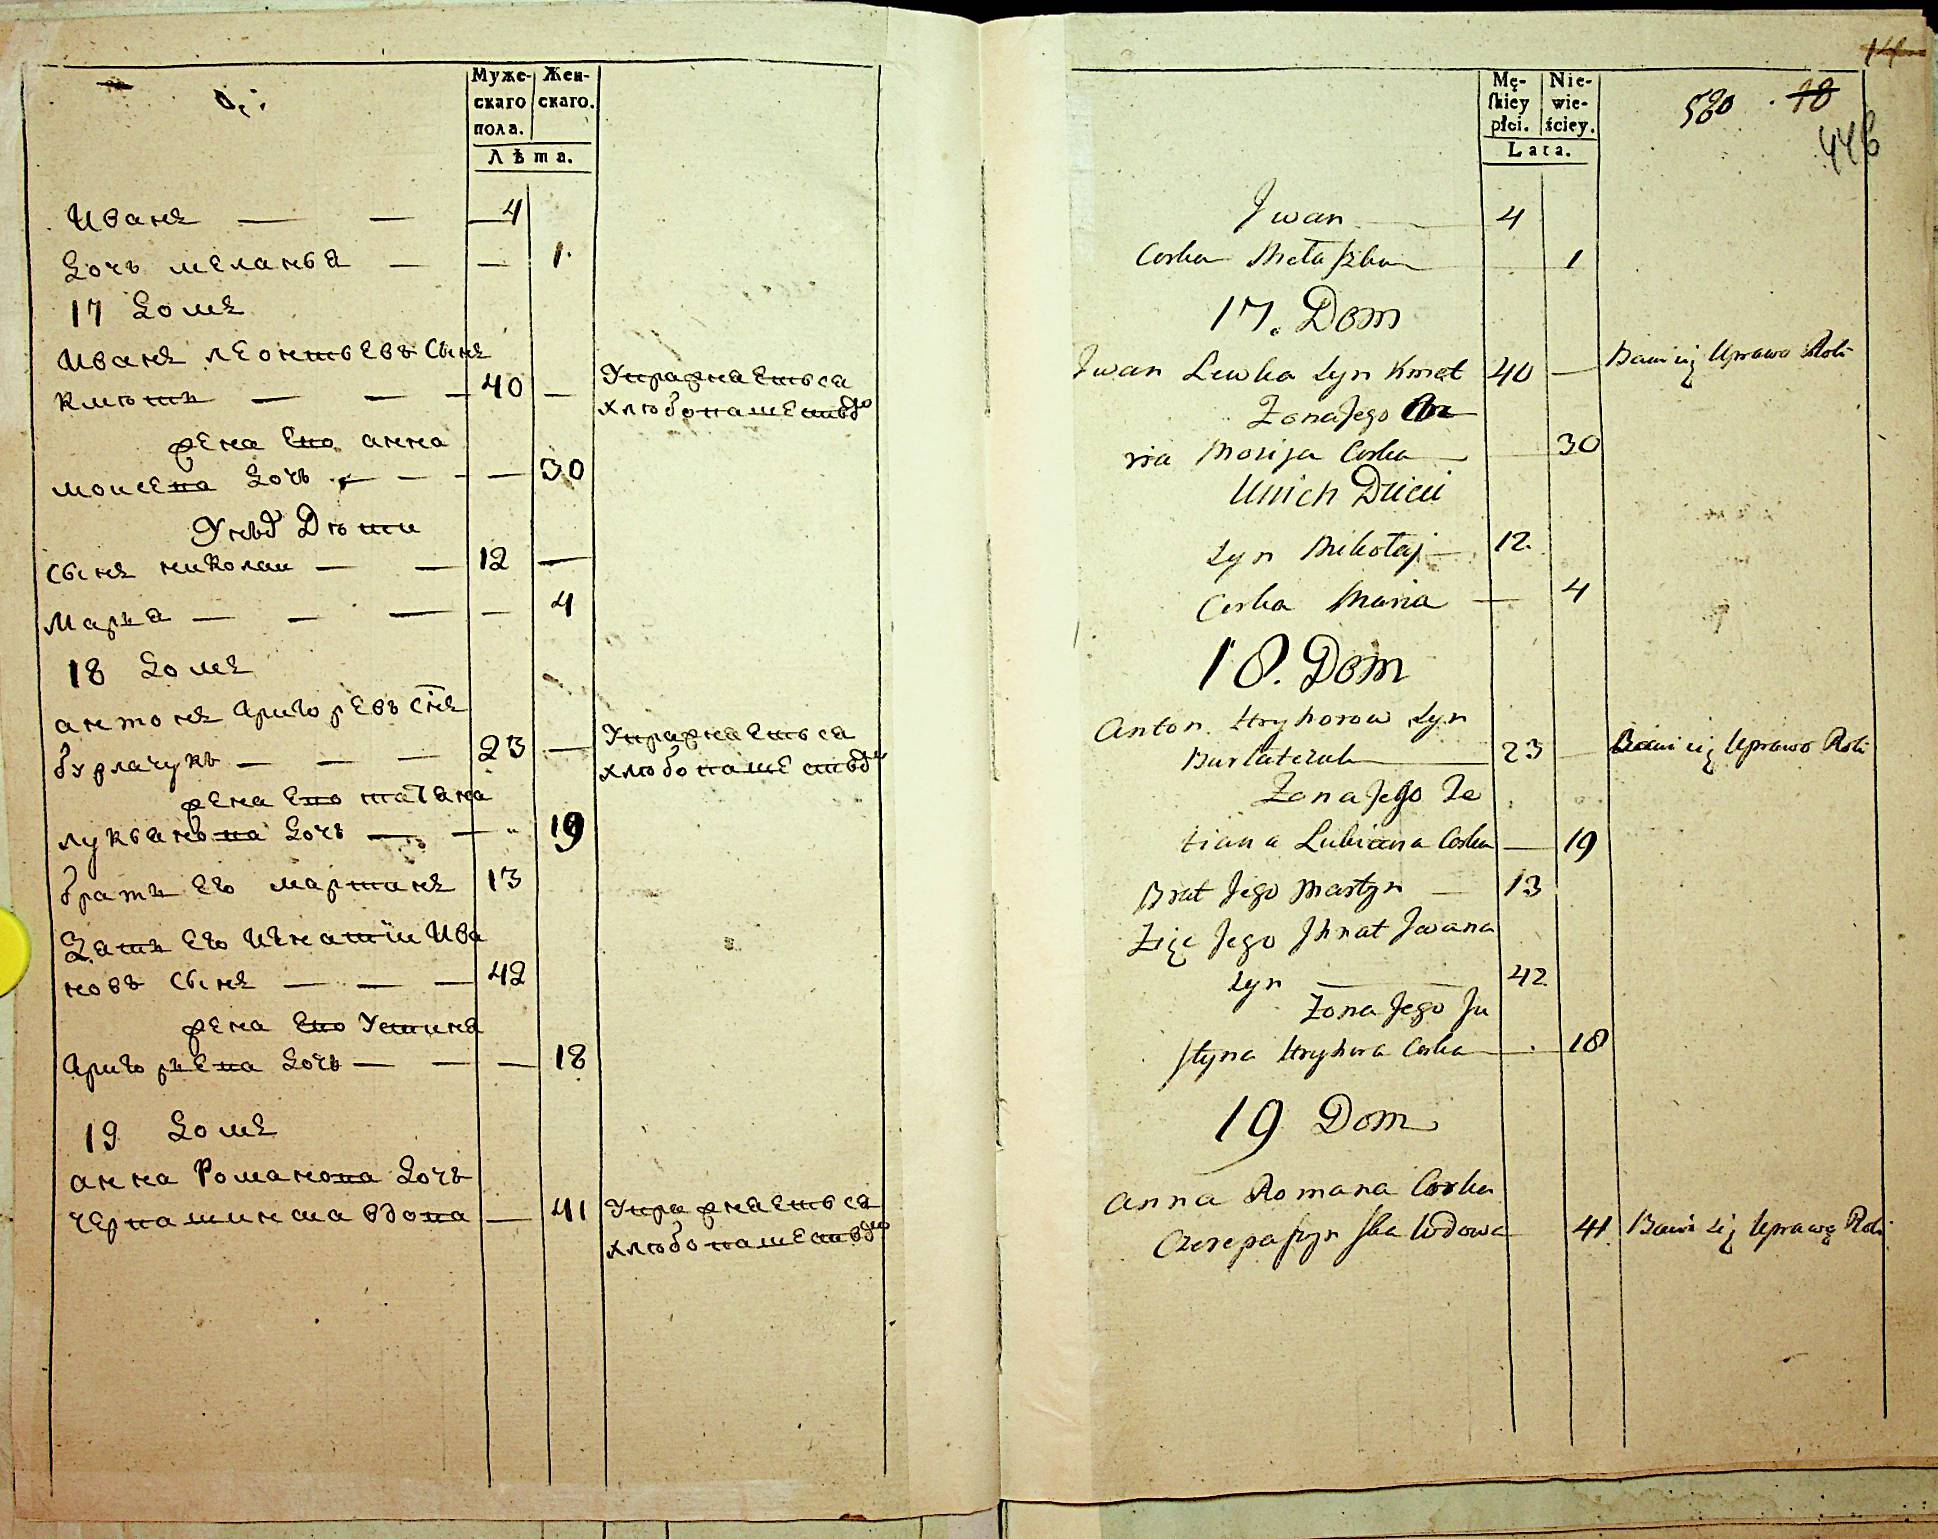 Муже- Жен-
скаго скаго.
пола.
Лѣта.
Иванъ — — 4
Дочь меланья — — 1.
17 Домъ
Иванъ леонтьевъ сынъ
Кмють — — — 40 — Упражнаеться
хлюбопашествдо
жена Его анна
моисева дочь — — — 30
У нюд Дюти
сынъ николаи — — 12 —
Марья — — — — 4
18 Домъ
антонъ григоревъ снъ
бурлачукъ — — — 23 — Упражнаеться
хлюбопашествд
жена Его татiана
лукьанова дочь — — 19
братъ Его мартинъ 13
Зать Его Игнатiи Ива
новъ сынъ — — — 42
жена Его Устина
григорьева дочь — — — 18
19 Домъ
анна Романова дочь
вдова — 41 Упражнаеться
хлюбопашествдо
Mę- Nie-
skiey wie-
płci. ściey.
Lata.
14
580 . 18
446
Jwan 4
Corka Mełaszka 1
17. Dom
Jwan Lewka Syn Kmet 40 — Bawi się Uprawą Roli
Zona Jego
Mosija Corka 30
Unich Dzieci
Syn Mikołaj — 12.
Corka Maria — 4
18. Dom
Anton Hryhorow Syn
Burlaczuk 23 — Bawi się Uprawo Roli
Zona Jego Te
tiana Lukiana Corka — 19
Brat Jego Martyn — 13
Zięc Jego Jhnat Jwana
Syn 42.
Zona Jego Ju
styna Hryhora Corka — 18
19 Dom
Anna Romana Corka
Czerepaszynska Wdowa 41 Bawi się Uprawą Roli